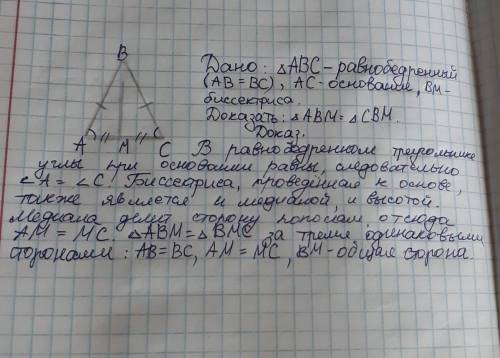 B
A
M
C
Дано: △ABC – равнобедренный
(AB = BC), AC – основание, BM –
биссектриса.
Доказать: △ABM = △CBM.
Доказ.
В равнобедренном треугольнике
углы при основании равны, следовательно
∠A = ∠C. Биссектриса, проведённая к основе,
также является и медианой, и высотой.
Медиана делит сторону пополам, отсюда
AM = MC. △ABM = △BMC за тремя одинаковыми
сторонами: AB = BC, AM = MC, BM – общая сторона.